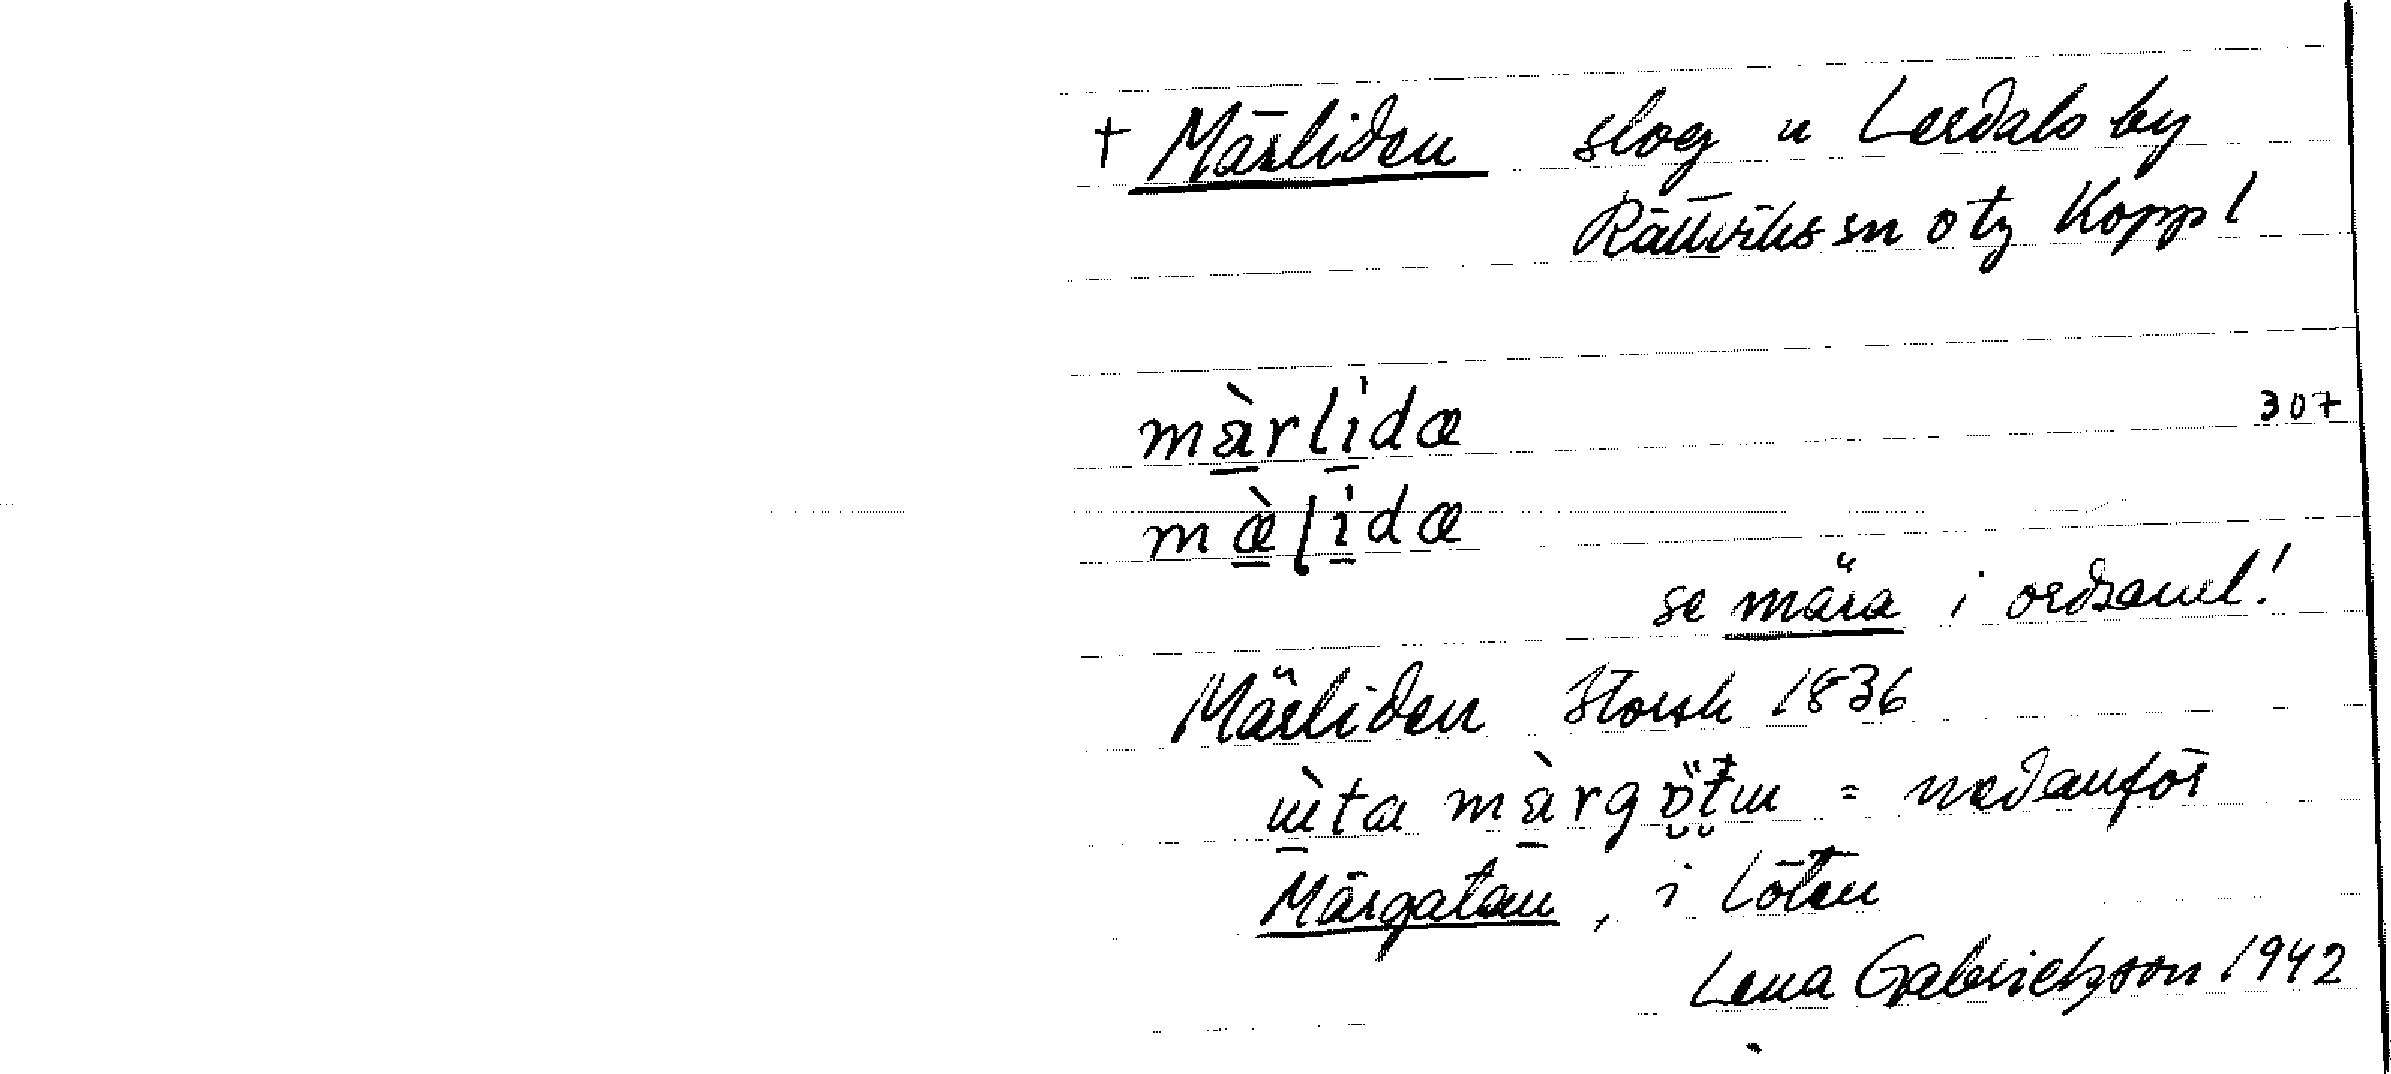 † Märliden slog u Lerdals by
Rättviks sn otg Koppl
màrlidæ
307
mæ̀lidæ
se mära i ordsaml!
Märliden Storsk 1836
ùta màrgötu = nedanför
Märgatan, i Löten
Lena Gabrielsson 1942